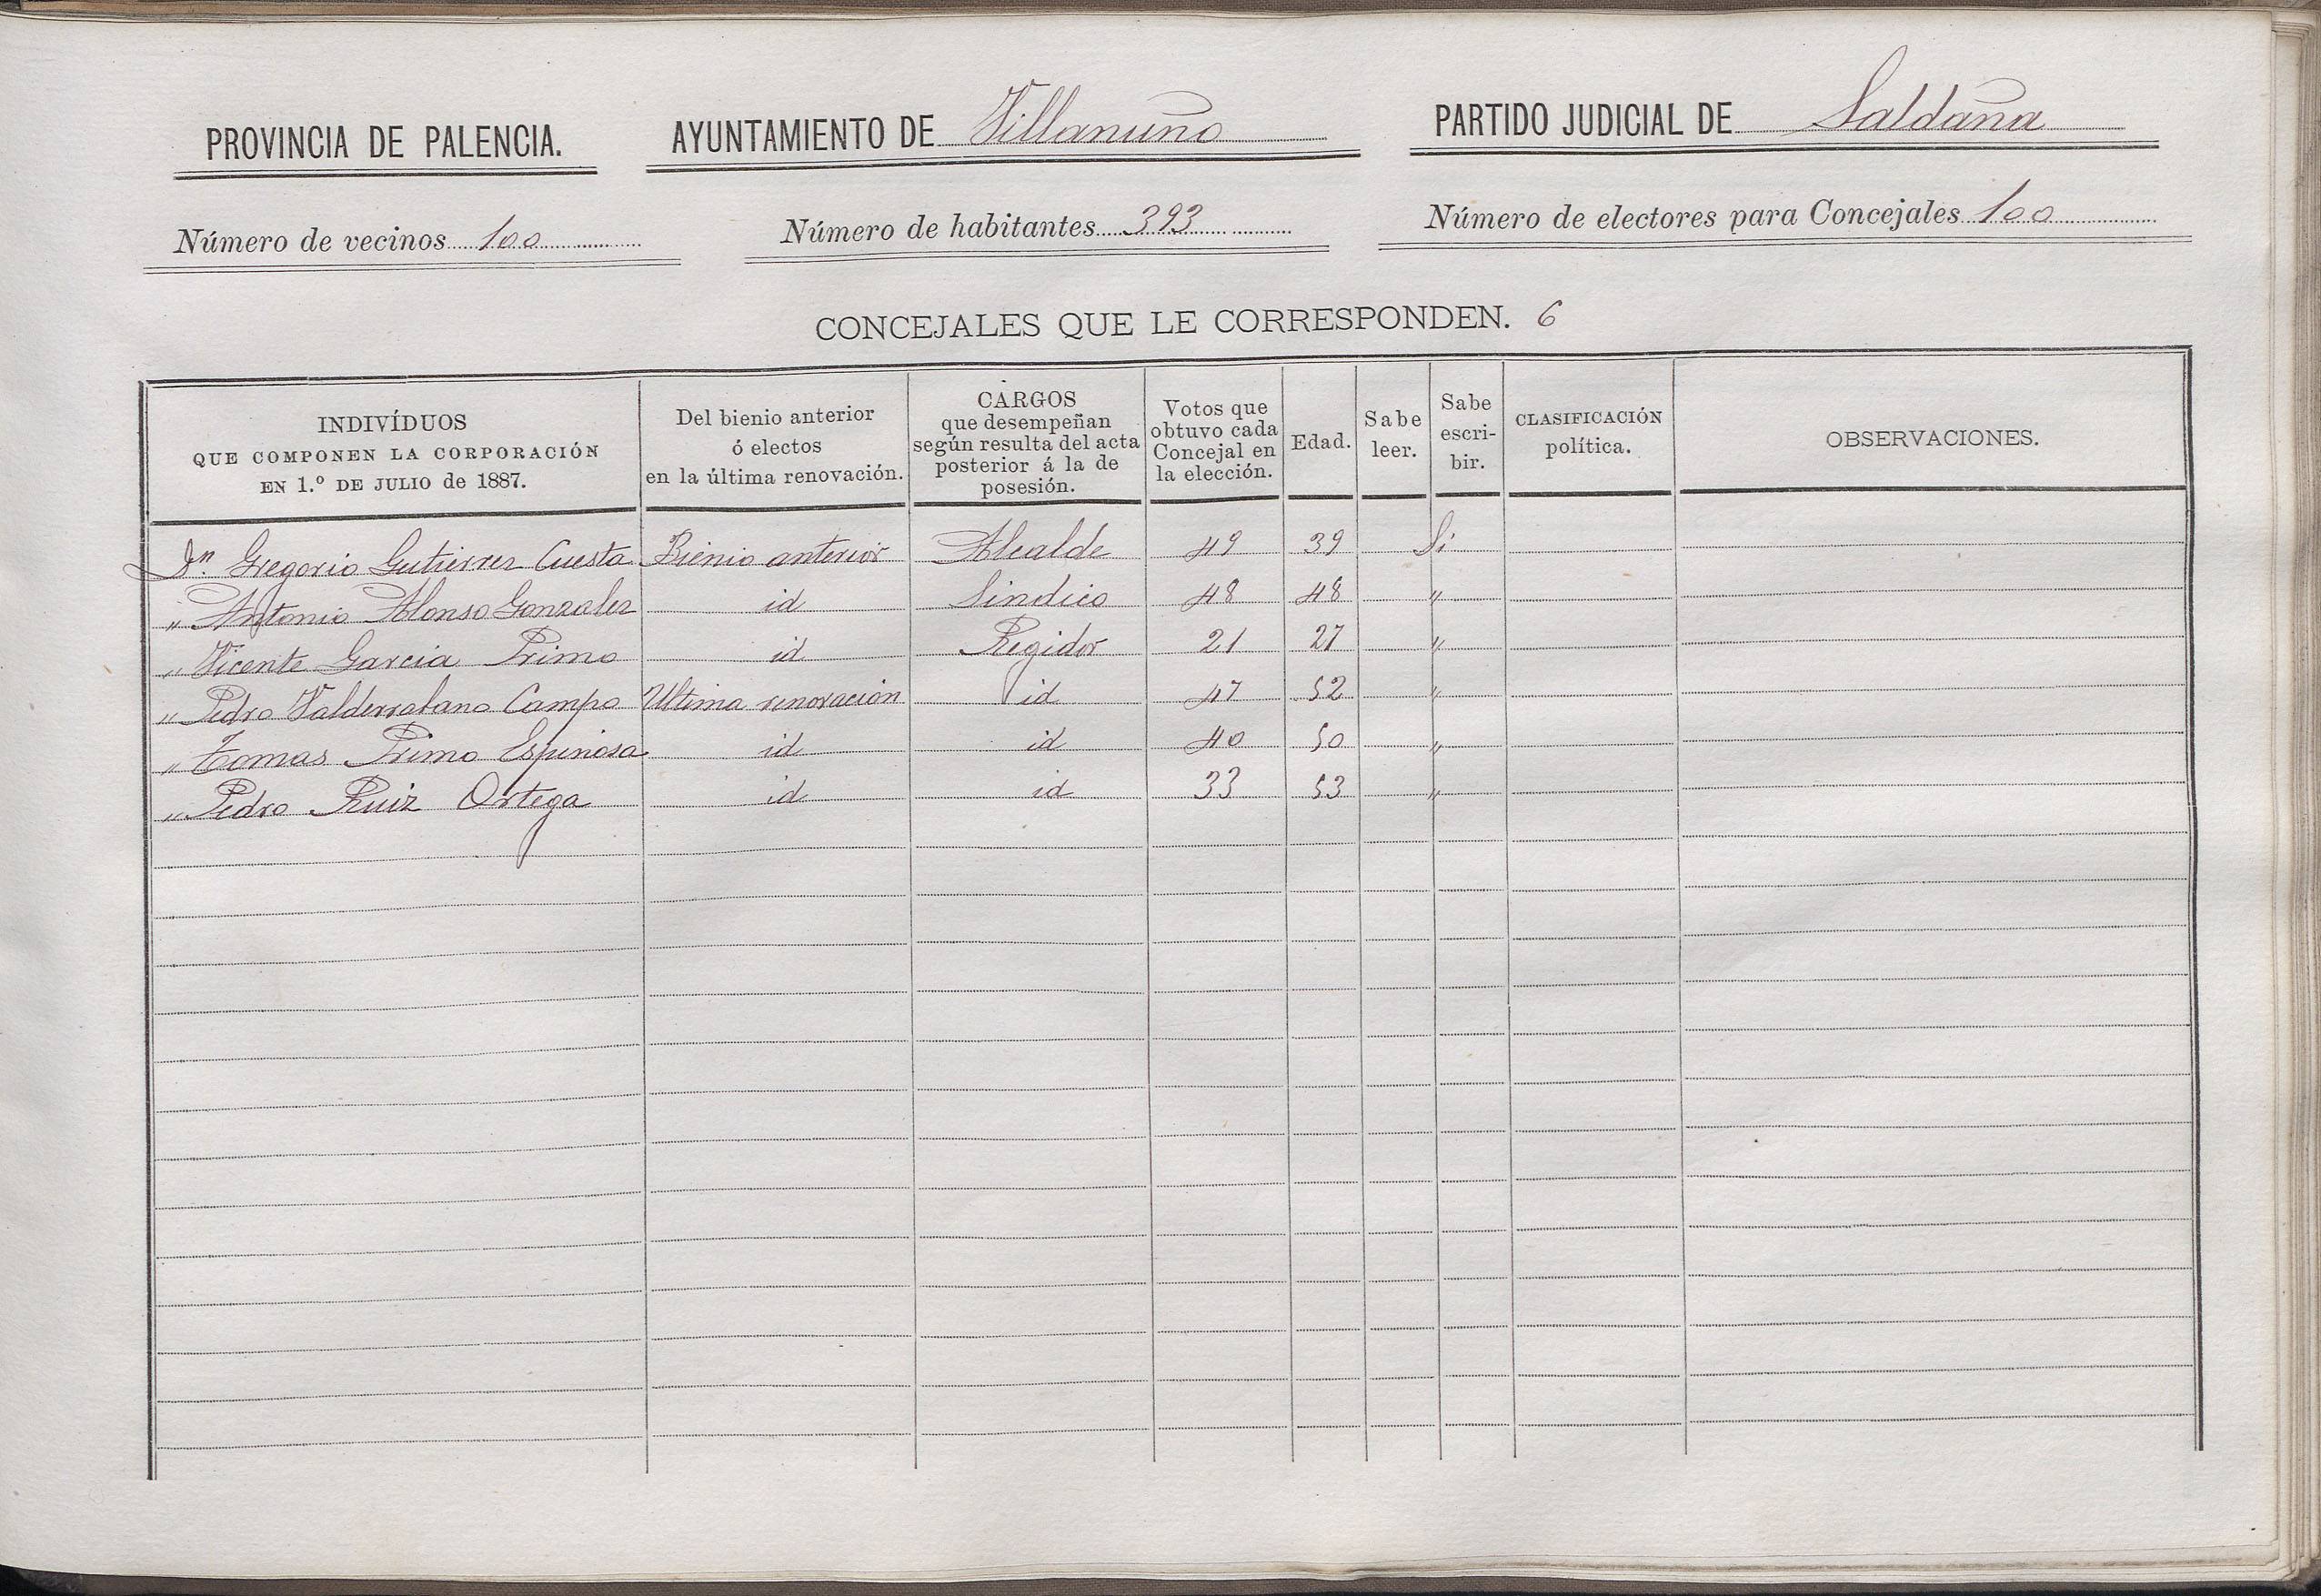 PROVINCIA DE PALENCIA. AYUNTAMIENTO DE Villanuño PARTIDO JUDICIAL DE Saldaña
Número de vecinos 100 Número de habitantes 393 Número de electores para Concejales 100
CONCEJALES QUE LE CORRESPONDEN. 6
INDIVÍDUOS
QUE COMPONEN LA CORPORACIÓN
EN 1.º DE JULIO de 1887.
Del bienio anterior
ó electos
en la última renovación.
CARGOS
que desempeñan
según resulta del acta
posterior á la de
posesión.
Votos que
obtuvo cada
Concejal en
la elección.
Edad.
Sabe
leer.
Sabe
escri-
bir.
CLASIFICACIÓN
política.
OBSERVACIONES.
Dn. Gregorio Gutierrez Cuesta Bienio anterior Alcalde 49 39 Si
„ Antonio Alonso Gonzalez id Sindico 48 48 „
„ Vicente Garcia Primo id Regidor 21 27 „
„ Pedro Valderrabano Campo Ultima renovación id 47 52 „
„ Tomas Primo Espinosa id id 40 50 „
„ Pedro Ruiz Ortega id id 33 53 „